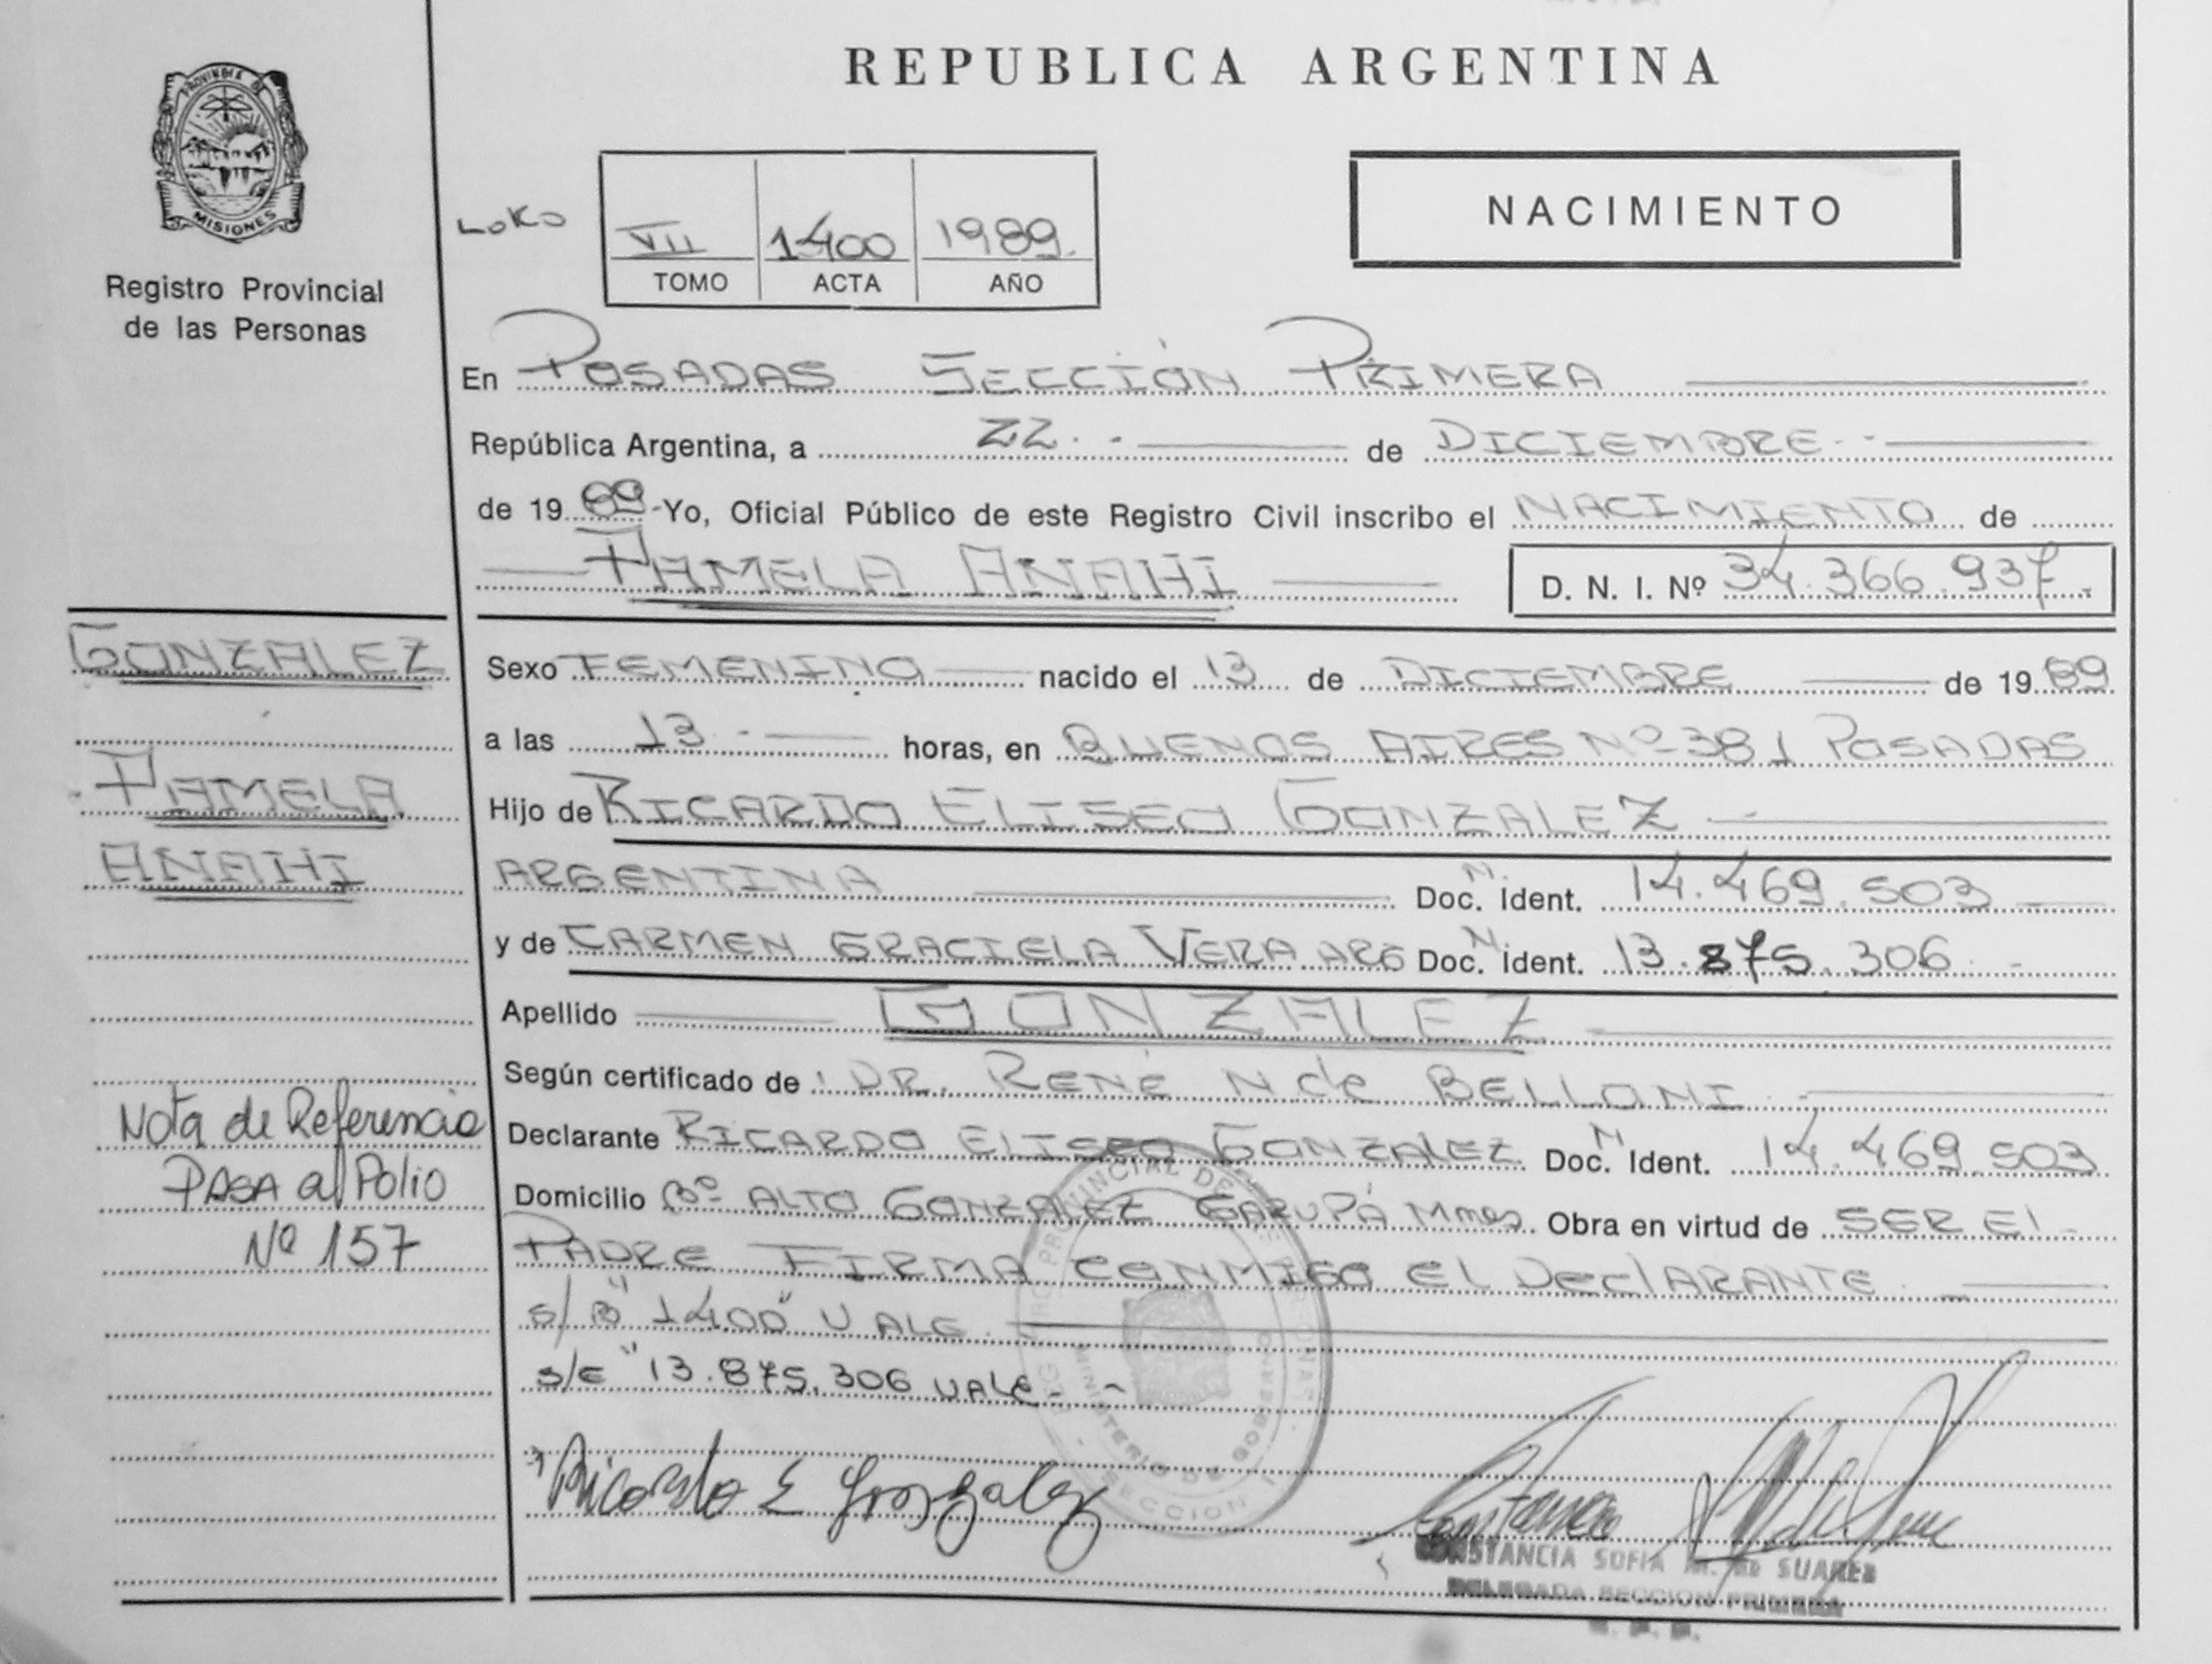 REPUBLICA ARGENTINA
PROVINCIA DE
MISIONES
Registro Provincial
de las Personas
NACIMIENTO
LOKO
VII 1400 1989.
TOMO ACTA AÑO
En POSADAS SECCIÓN PRIMERA
República Argentina, a 22.- de DICIEMBRE.-
de 1989-Yo, Oficial Público de este Registro Civil inscribo el NACIMIENTO de
PAMELA ANAHI D. N. I. Nº 34.366.937.-
GONZALEZ
PAMELA
ANAHI
Sexo FEMENINO nacido el 13 de DICIEMBRE de 1989
a las 13.- horas, en BUENOS AIRES Nº 381 POSADAS
Hijo de RICARDO ELISEO GONZALEZ
ARGENTINA Doc. N. Ident. 14.469.503
y de CARMEN GRACIELA VERA ARG Doc. N. Ident. 13.875.306.-
Apellido GONZALEZ
Según certificado de: DR. RENE N de BELLONI
Declarante RICARDO ELISEO GONZALEZ Doc. N Ident. 14.469.503
Domicilio Bº ALTO GONZALEZ GARUPÁ Mnes Obra en virtud de SER El
PADRE FIRMA CONMIGO EL DEClARANTE
s/B "1400" VALE
s/E "13.875.306 VALE.-
Nota de Referencia
PASA al Folio
Nº 157
REG PROVINCIAL DE LAS PERSONAS
MINISTERIO DE GOBIERNO
SECCION 1
Ricardo E Gonzalez
CONSTANCIA SOFIA M. de SUAREZ
DELEGADA SECCION PRIMERA
R. P. P.